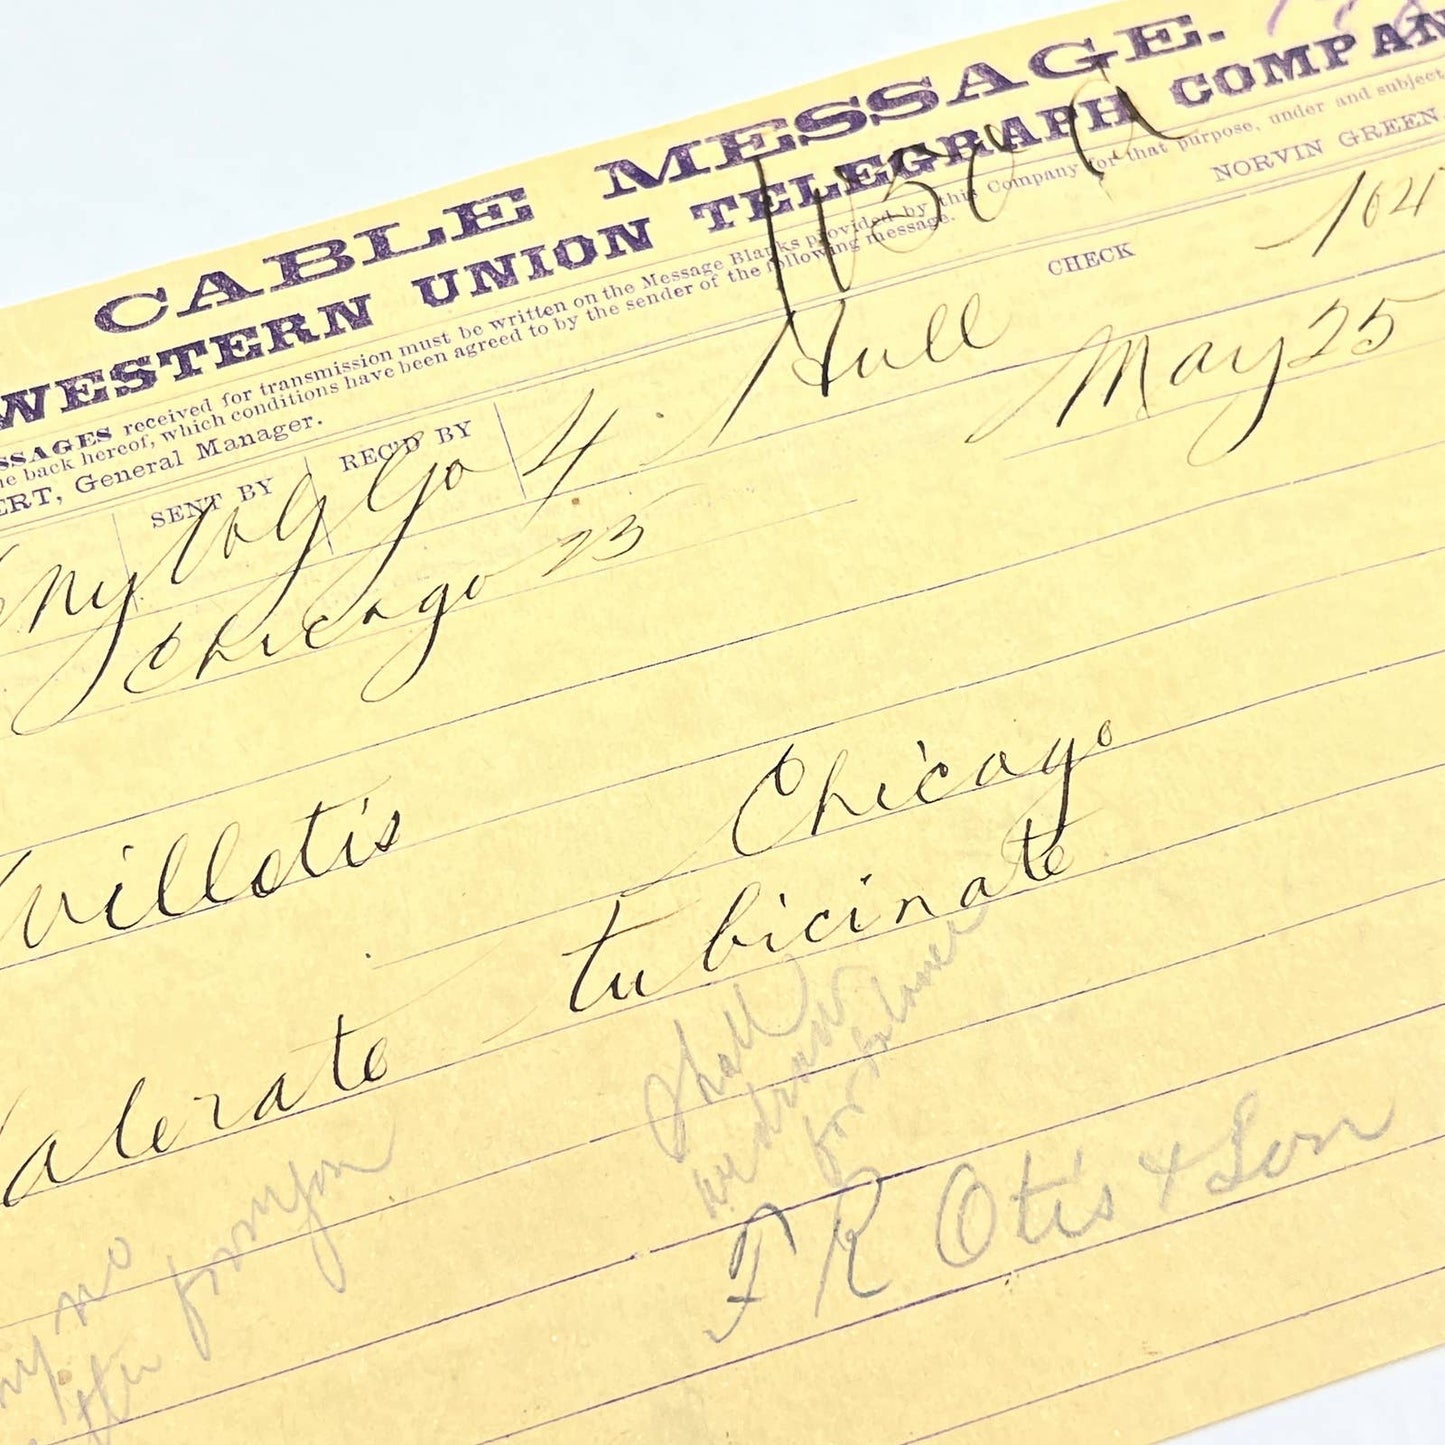 CABLE MESSAGE.
WESTERN UNION TELEGRAPH COMPAN
SSAGES received for transmission must be written on the Message Blanks provided by this Company for that purpose, under and subject
e back hereof, which conditions have been agreed to by the sender of the following message.
ERT, General Manager.
NORVIN GREEN
SENT BY
REC'D BY
CHECK
1130 a
104
ny Go 4 Hull May 25
Chicago 25
villotis Chicago
alerate tubicinate
Shall
for
no
from you
F R Otis & Son